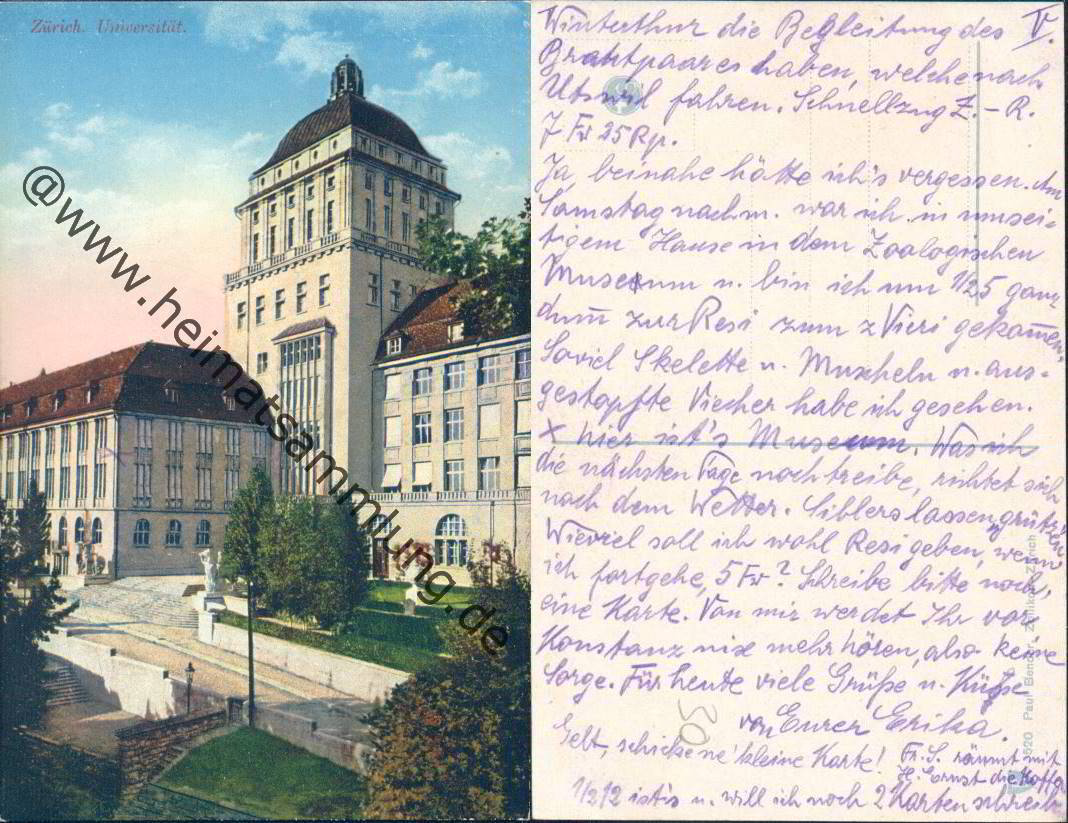 Zürich. Universität.
@www.heimatsammlung.de
V.
Winterthur die Begleitung des
Brautpaares haben, welche nach
Utswil fahren. Schnellzug Z.-R.
7 Fr 25 Rp.
Ja, beinahe hätte ich's vergessen. Am
Samstag nachm. war ich in umsei-
tigem Hause in dem Zoologischen
Museum u. bin ich um 1/2 5 ganz
dum̅ zur Resi zum z'Vieri gekom̅en,
Soviel Skelette u. Muscheln u. aus-
gestopfte Viecher habe ich gesehen.
x hier ist's Museum. Was ich
die nächsten Tage noch treibe, richtet sich
nach dem Wetter. Siblers lassen grüßen
Wieviel soll ich wohl Resi geben, wenn
ich fortgehe, 5 Fr? Schreibe bitte noch,
eine Karte. Von mir werdet Ihr vor
Konstanz nix mehr hören, also keine
Sorge. Für heute viele Grüße u. Küße
von Eurer Erika.
Gelt, schicke ne' kleine Karte!
Fr. S. räumt mit
H. Cornst die Koffer
1/2 12 ist's u. will ich noch 2 Karten schreib
50
3520 Paul Bender, Zollikon-Zürich